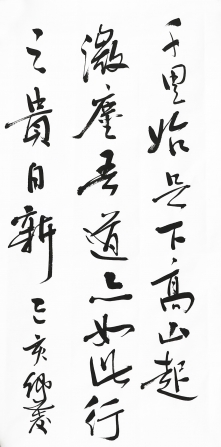 千里始足下高山起
微塵吾道亦如此行
之貴日新 己亥